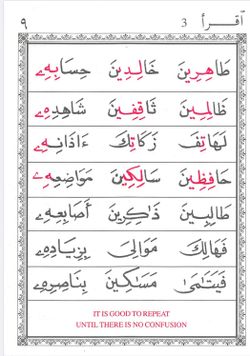 ٩ 3 اقرأ
طَاهِرِينَ خَالِدِينَ حِسَابِهِۦ
ظَالِمِينَ ثَاقِفِينَ شَاهِدِهِۦ
لَهَاتِفَ زَكَاتِكَ ءَاذَانِهِۦ
حَافِظِينَ سَالِكِينَ مَوَاضِعِهِۦ
طَالِبِينَ ذَٰكِرِينَ أَصَابِعِهِۦ
فَهَالِكَ مَوَالِىَ بِزِيَادِهِۦ
فَيَتَـٰمَىٰ مَسَـٰكِينَ بِنَاصِرِهِۦ
IT IS GOOD TO REPEAT
UNTIL THERE IS NO CONFUSION